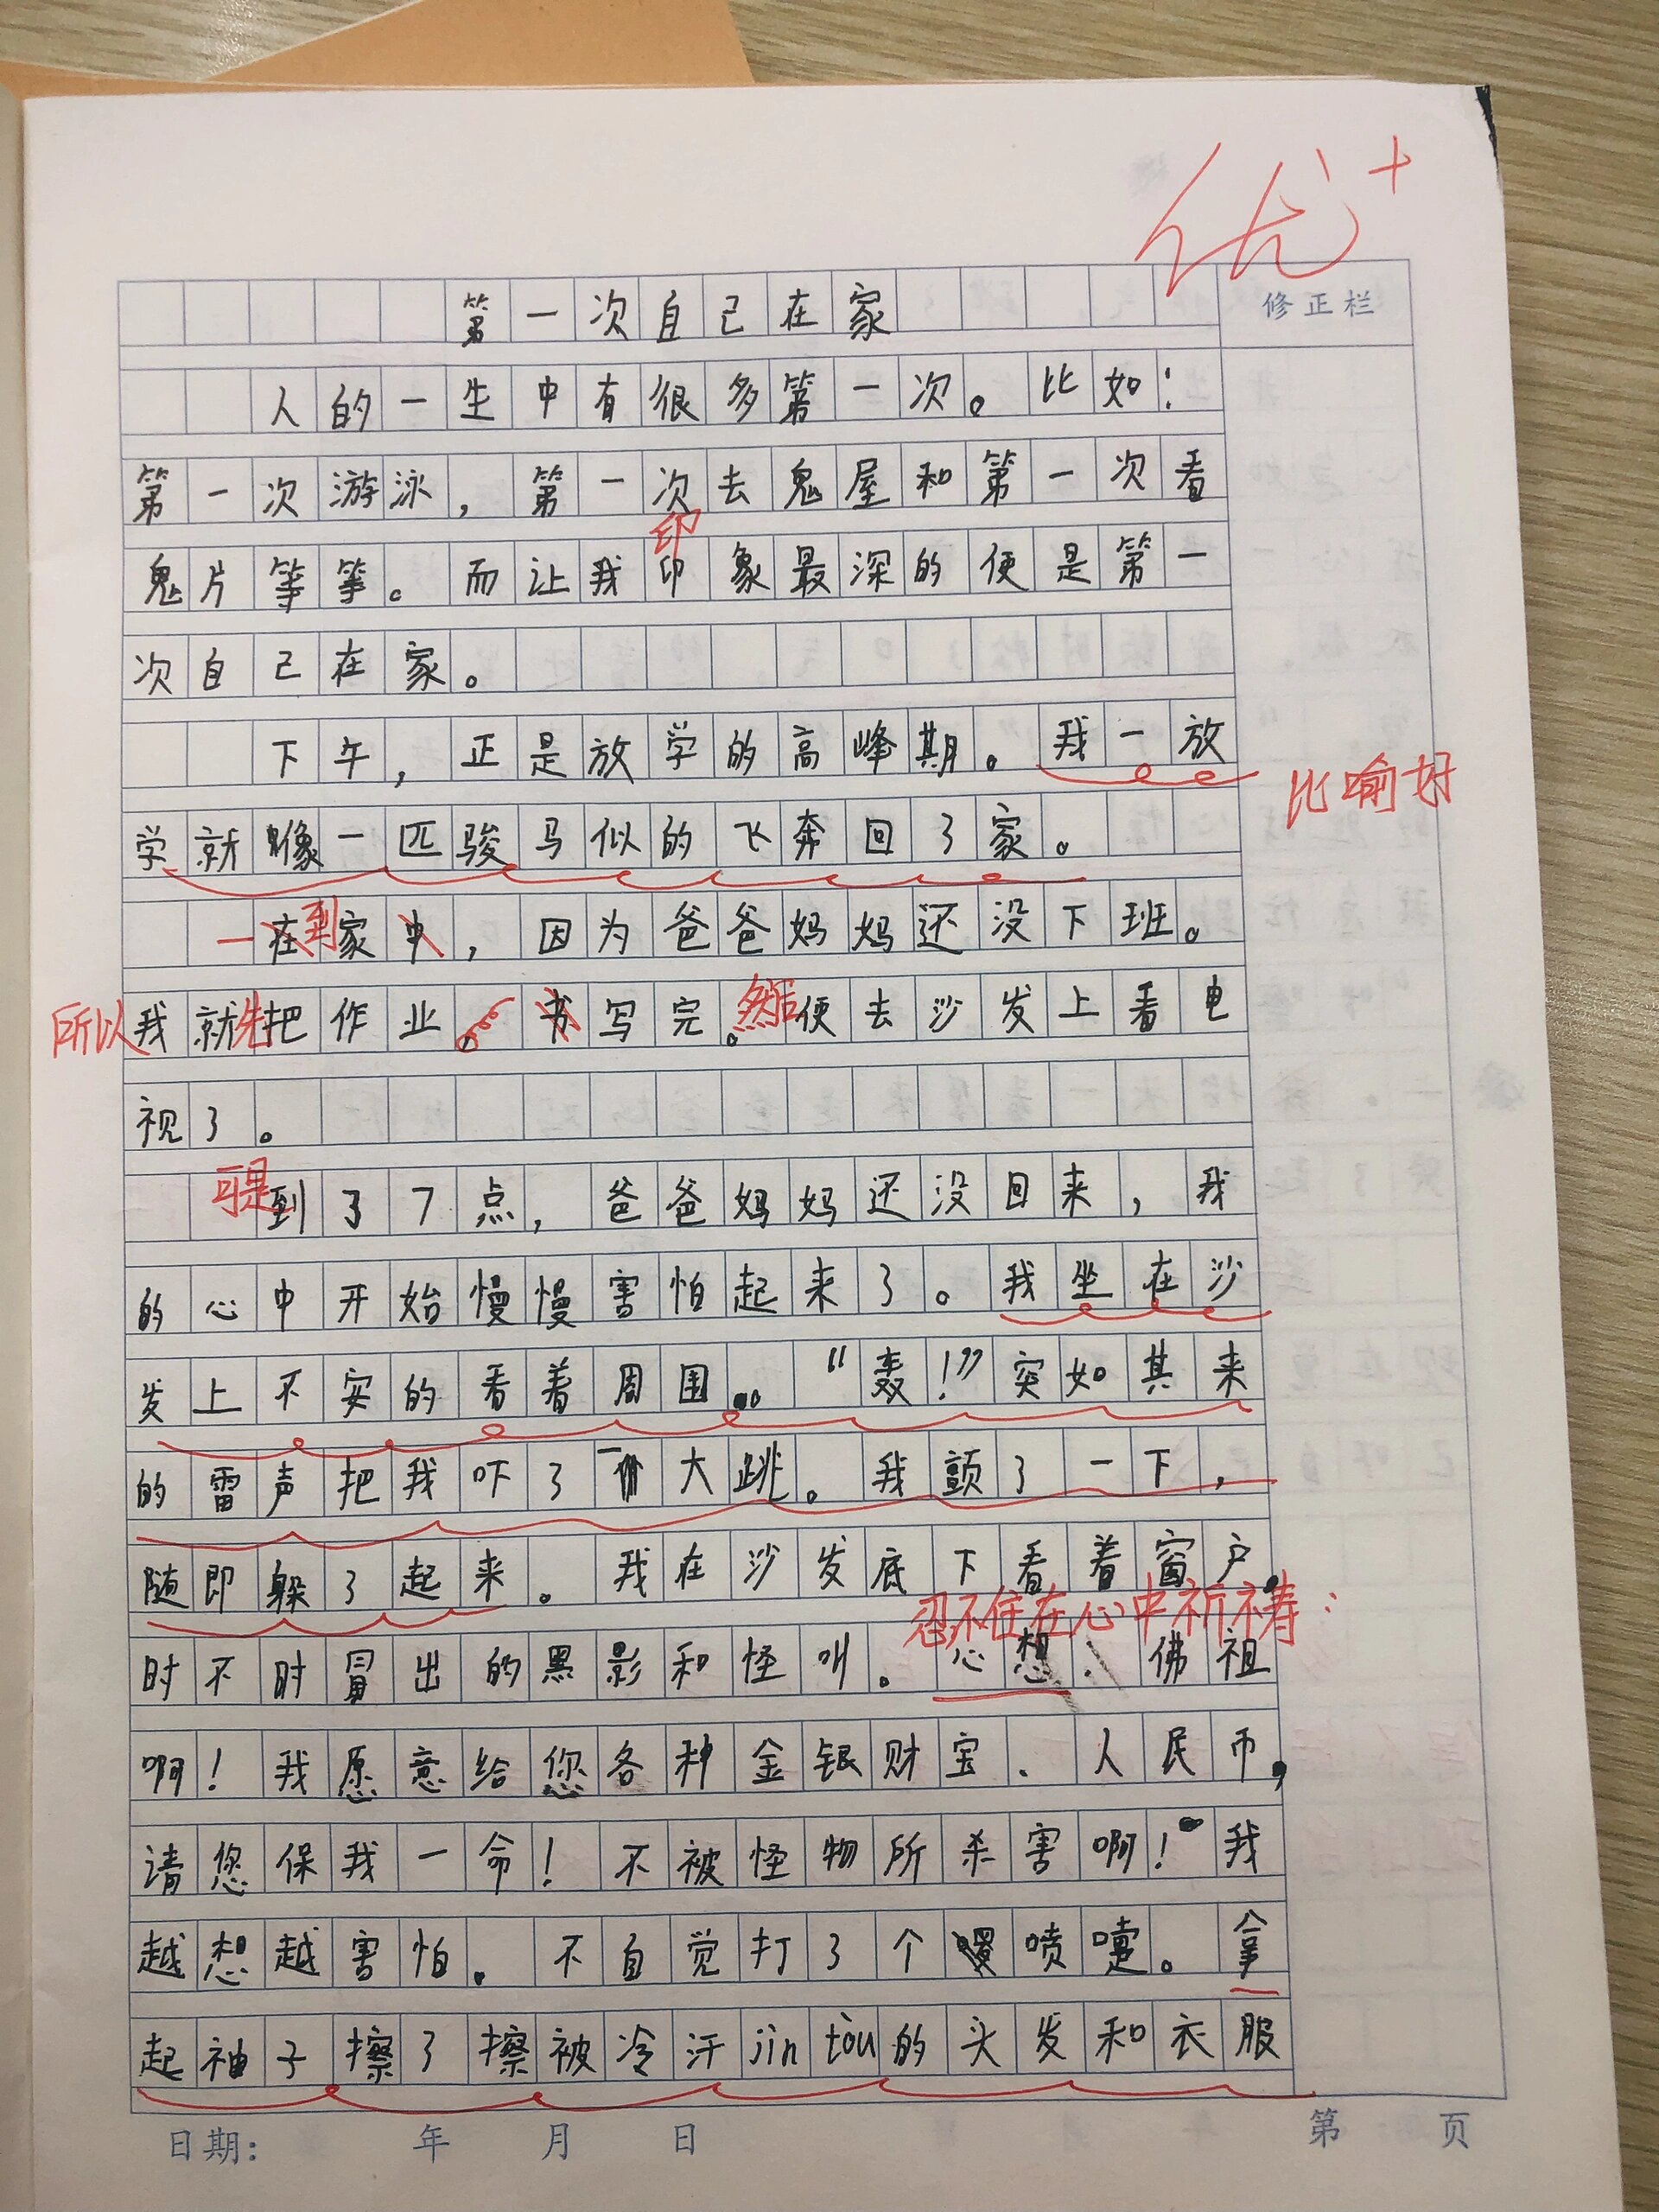 优+
修正栏
第一次自己在家
人的一生中有很多第一次。比如：
第一次游泳，第一次去鬼屋和第一次看
印
鬼片等等。而让我印象最深的便是第一
次自己在家。
下午，正是放学的高峰期。我一放
比喻好
学就像一匹骏马似的飞奔回了家。
一到
在家中，因为爸爸妈妈还没下班。
所以我就先把作业书写完。然后便去沙发上看电
视了。
可是
到了7点，爸爸妈妈还没回来，我
的心中开始慢慢害怕起来了。我坐在沙
发上不安的看着周围。“轰！”突如其来
的雷声把我吓了一大跳。我颤了一下，
随即躲了起来。我在沙发底下看着窗户
忍不住在心中祈祷：
时不时冒出的黑影和怪叫。心想：佛祖
啊！我愿意给您各种金银财宝、人民币，
请您保我一命！不被怪物所杀害啊！我
越想越害怕。不自觉打了个喷嚏。拿
起袖子擦了擦被冷汗jin tòu的头发和衣服
日期： 年 月 日
第 页